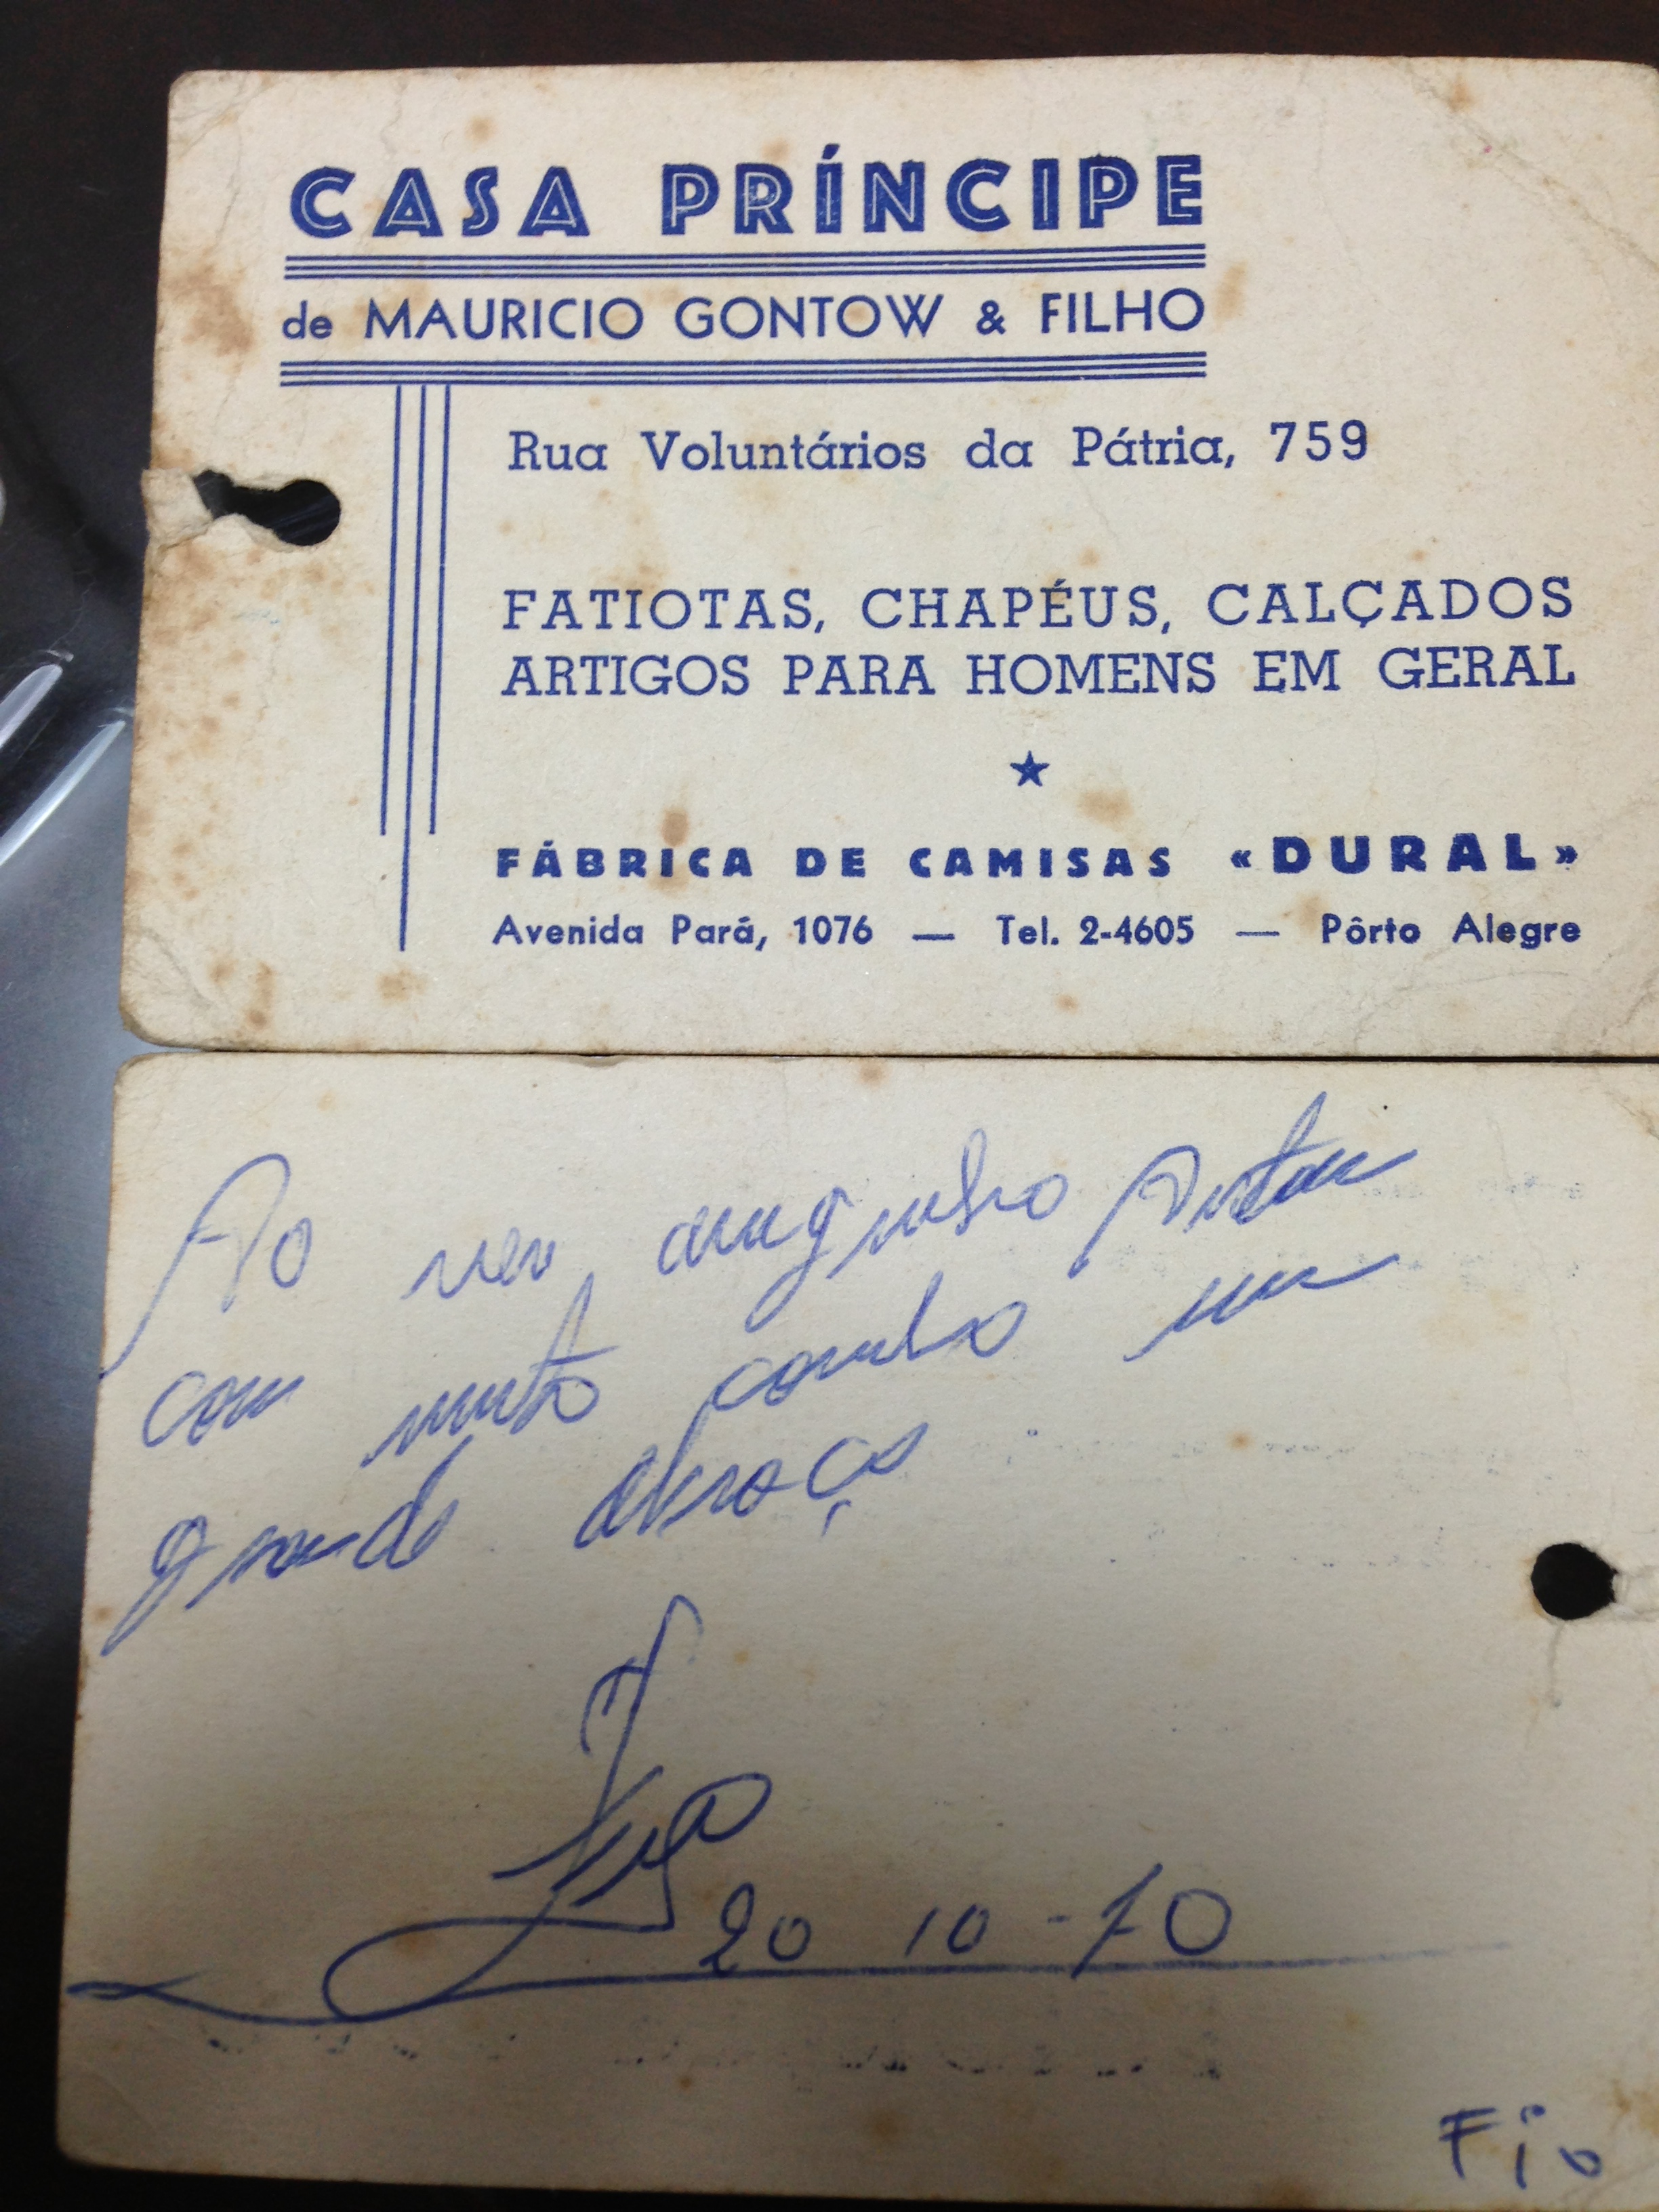 CASA PRÍNCIPE
de MAURICIO GONTOW & FILHO
Rua Voluntários da Pátria, 759
FATIOTAS, CHAPÉUS, CALÇADOS
ARTIGOS PARA HOMENS EM GERAL
★
FÁBRICA DE CAMISAS «DURAL»
Avenida Pará, 1076 — Tel. 2-4605 — Pôrto Alegre
Ao meu amiguinho
com muito carinho um
grande abraço
20 10-70
Fio